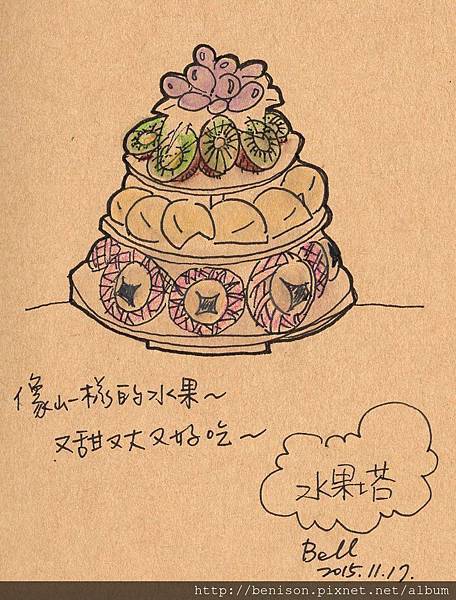 像山一樣的水果~
又甜又大又好吃~
水果塔
Bell
2015.11.17.
http://benison.pixnet.net/album